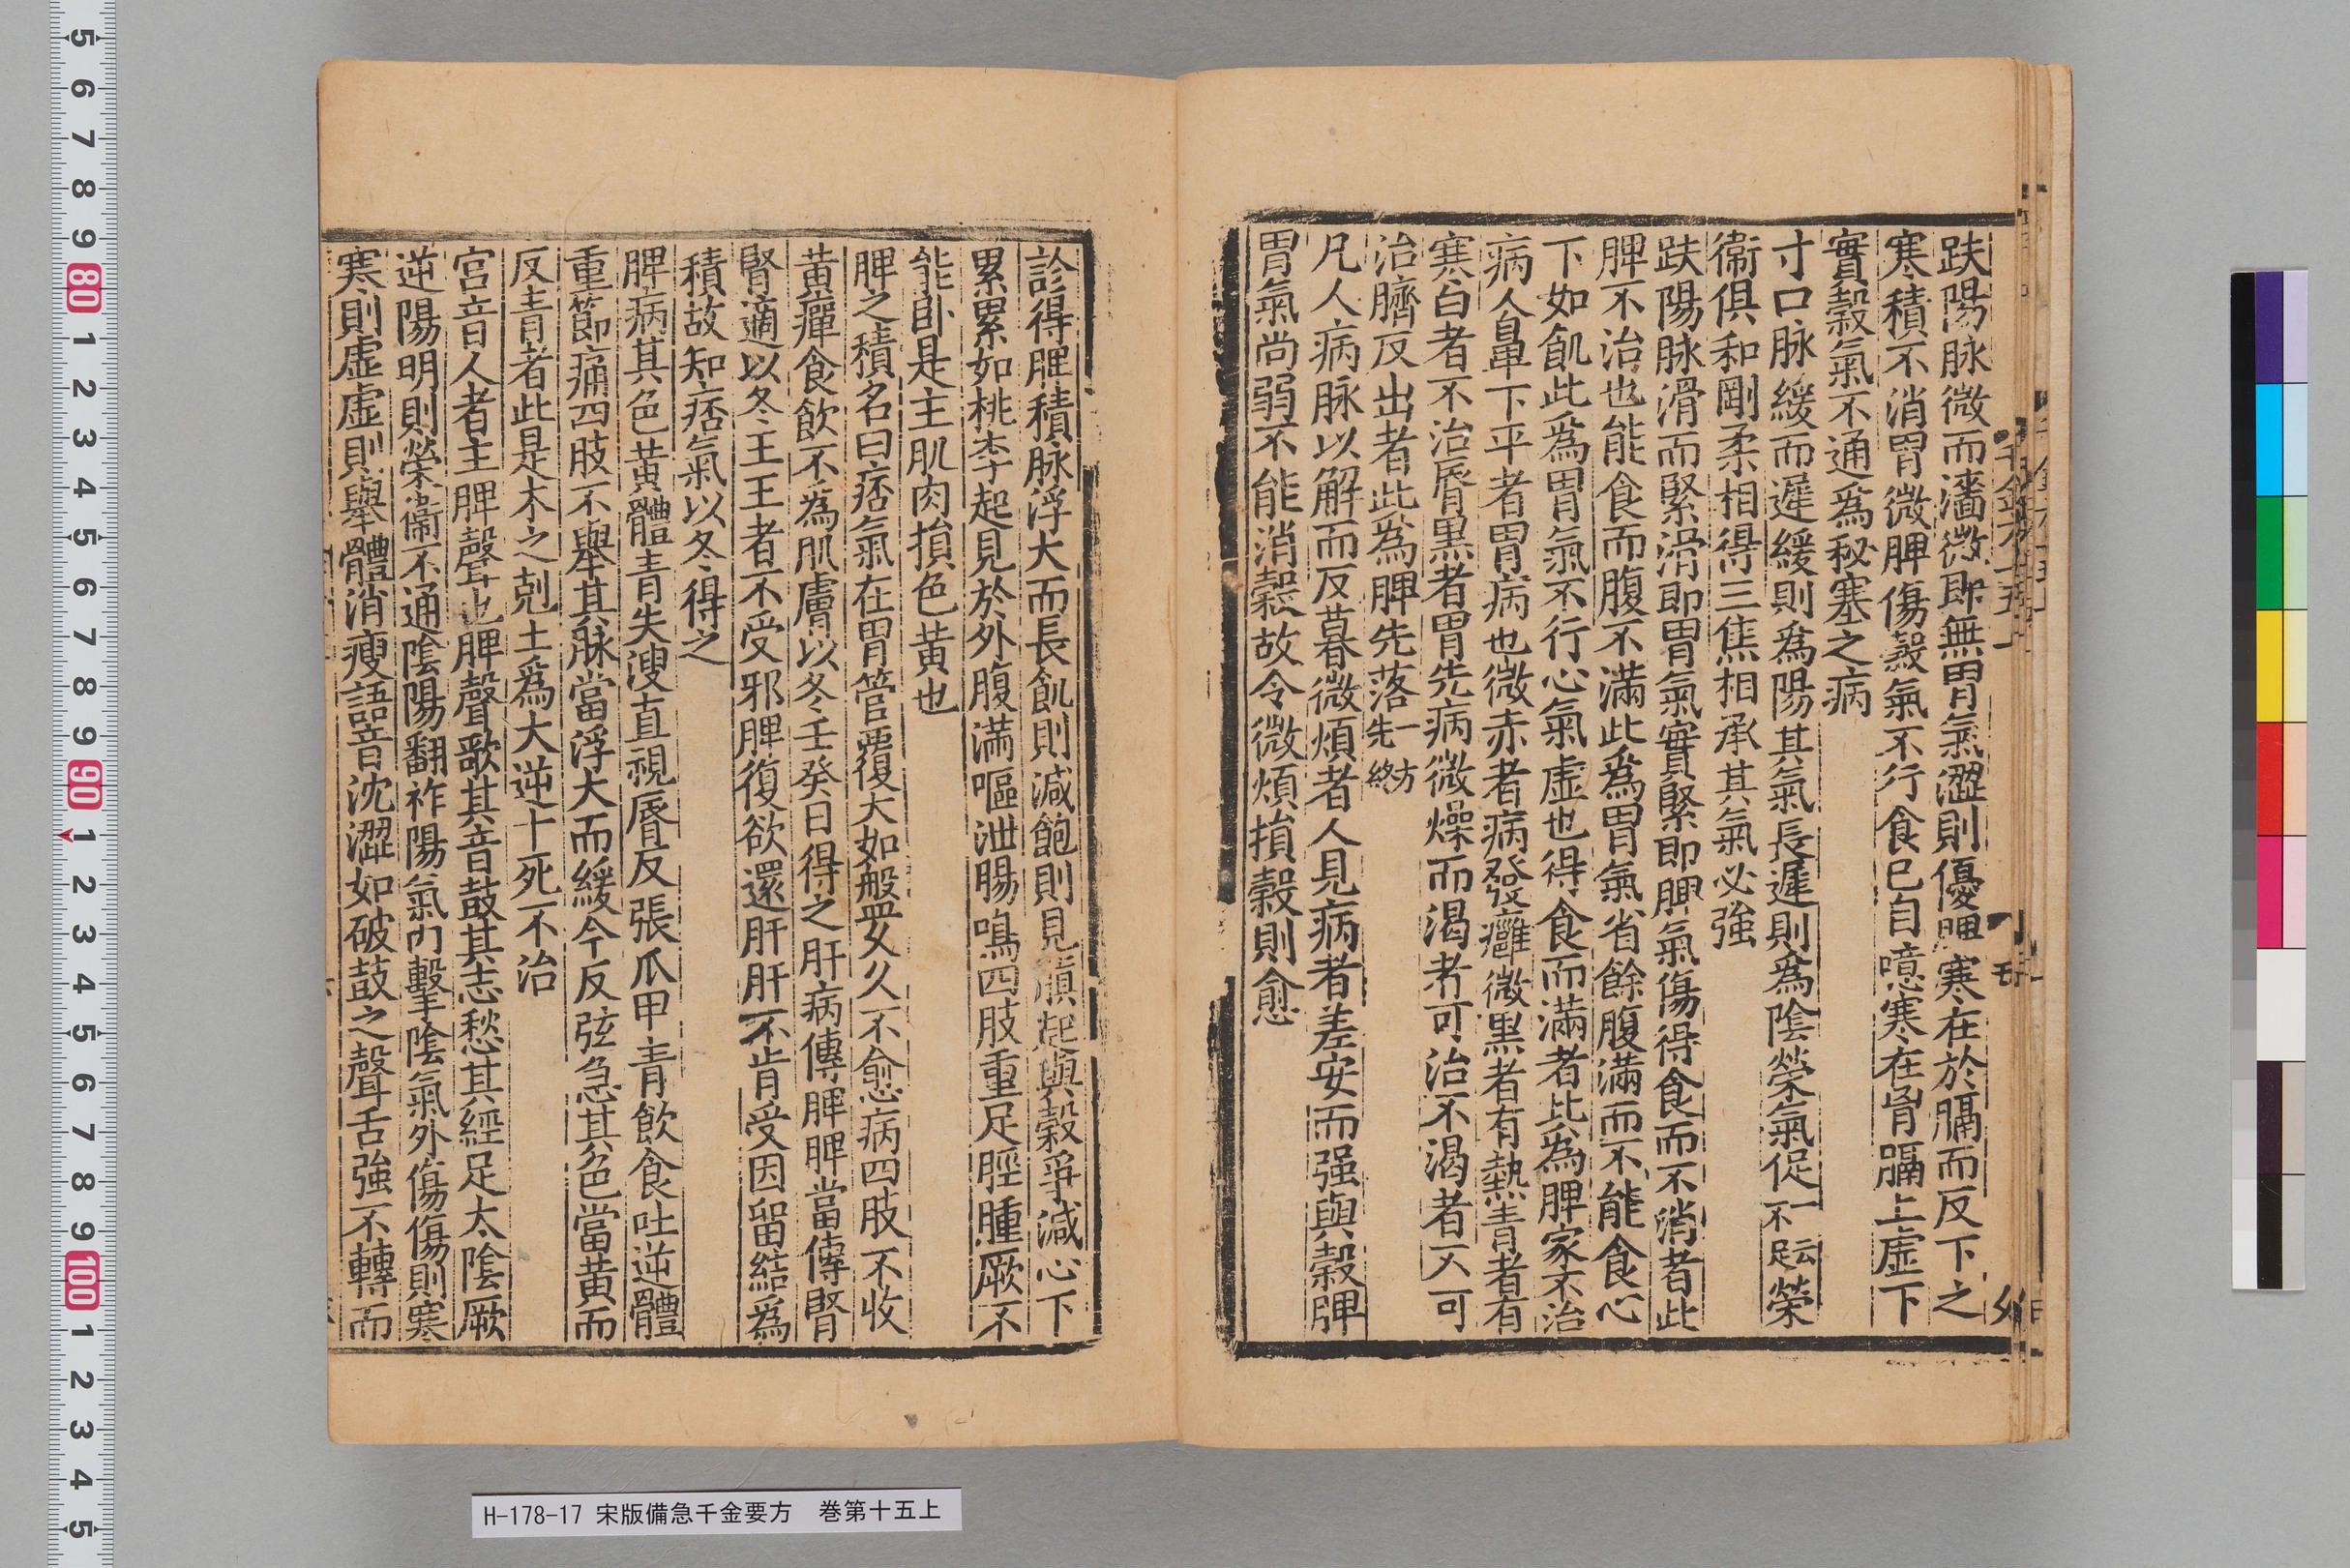 趺陽脉微而濇微即無胃氣澀則傷脾寒在於膈而反下之
寒積不消胃微脾傷穀氣不行食已自噫寒在胷膈上虛下
實穀氣不通爲秘塞之病
寸口脉緩而遲緩則爲陽其氣長遲則爲陰榮氣促一云不足榮
衞俱和剛柔相得三焦相承其氣必強
趺陽脉滑而緊滑即胃氣實緊即脾氣傷得食而不消者此
脾不治也能食而腹不滿此爲胃氣省餘腹滿而不能食心
下如飢此爲胃氣不行心氣虛也得食而滿者此爲脾家不治
病人鼻下平者胃病也微赤者病發癰微黑者有熱青者有
寒白者不治脣黑者胃先病微燥而渴者可治不渴者不可
治臍反出者此爲脾先落一方先終
凡人病脉以解而反暮微煩者人見病者差安而强與穀脾
胃氣尚弱不能消穀故令微煩損穀則愈
診得脾積脉浮大而長飢則減飽則見䐜起與穀爭減心下
累累如桃李起見於外腹滿嘔泄腸鳴四肢重足脛腫厥不
能臥是主肌肉損色黃也
脾之積名曰痞氣在胃管覆大如盤久久不愈病四肢不收
黃癉食飲不爲肌膚以冬壬癸日得之肝病傳脾脾當傳腎
腎適以冬王王者不受邪脾復欲還肝肝不肯受因留結爲
積故知痞氣以冬得之
脾病其色黃體青失溲直視脣反張爪甲青飲食吐逆體
重節痛四肢不舉其脉當浮大而緩今反弦急其色當黃而
反青者此是木之剋土爲大逆十死不治
宮音人者主脾聲也脾聲歌其音鼓其志愁其經足太陰厥
逆陽明則榮衞不通陰陽翻祚陽氣內擊陰氣外傷傷則寒
寒則虛虛則舉體消瘦語音沈澀如破鼓之聲舌強不轉而
H-178-17 宋版備急千金要方 巻第十五上